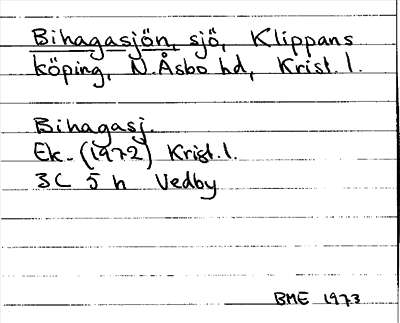 Bihagasjön, sjö, Klippans
köping, N. Åsbo hd, Krist. l.
Bihagasj.
Ek. (1972) Krist. l.
3C 5 h Vedby
BME 1973